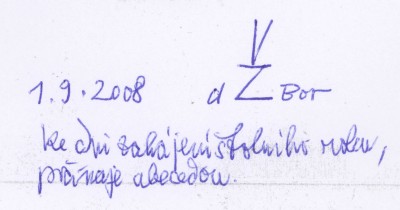 1.9.2008 d V Z Bor
ke dni zahájení školního roku,
abecedou.